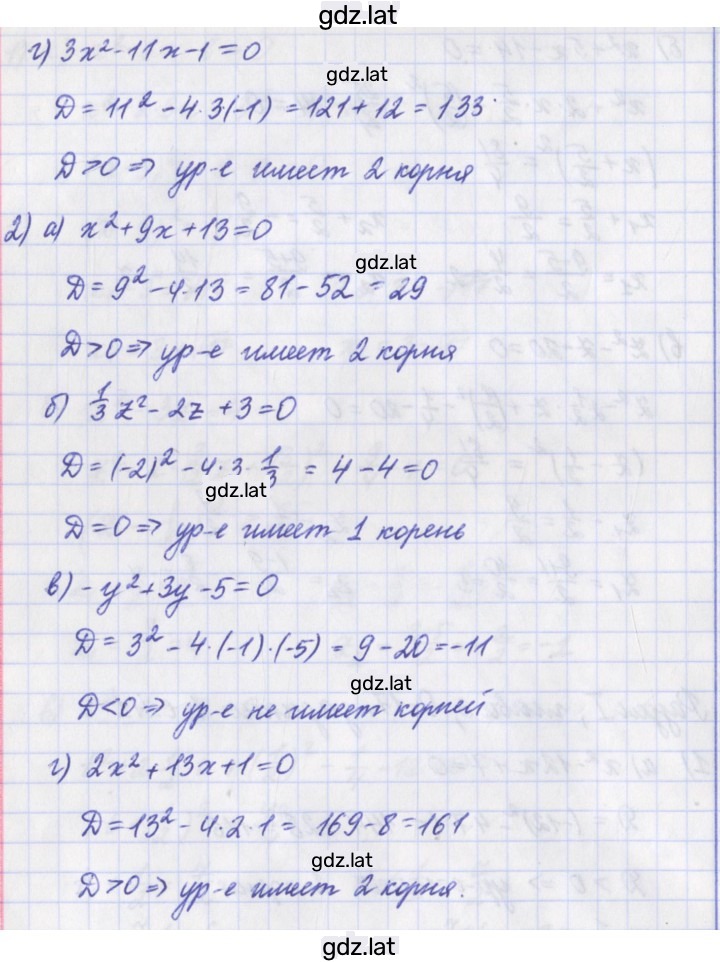 gdz.lat
г) 3x² - 11x - 1 = 0
gdz.lat
D = 11² - 4·3(-1) = 121 + 12 = 133
D > 0 => ур-е имеет 2 корня
2) а) x² + 9x + 13 = 0
gdz.lat
D = 9² - 4·13 = 81 - 52 = 29
D > 0 => ур-е имеет 2 корня
б) 1/3 z² - 2z + 3 = 0
D = (-2)² - 4·3·1/3 = 4 - 4 = 0
gdz.lat
D = 0 => ур-е имеет 1 корень
в) -y² + 3y - 5 = 0
D = 3² - 4·(-1)·(-5) = 9 - 20 = -11
gdz.lat
D < 0 => ур-е не имеет корней
г) 2x² + 13x + 1 = 0
D = 13² - 4·2·1 = 169 - 8 = 161
gdz.lat
D > 0 => ур-е имеет 2 корня.
gdz.lat